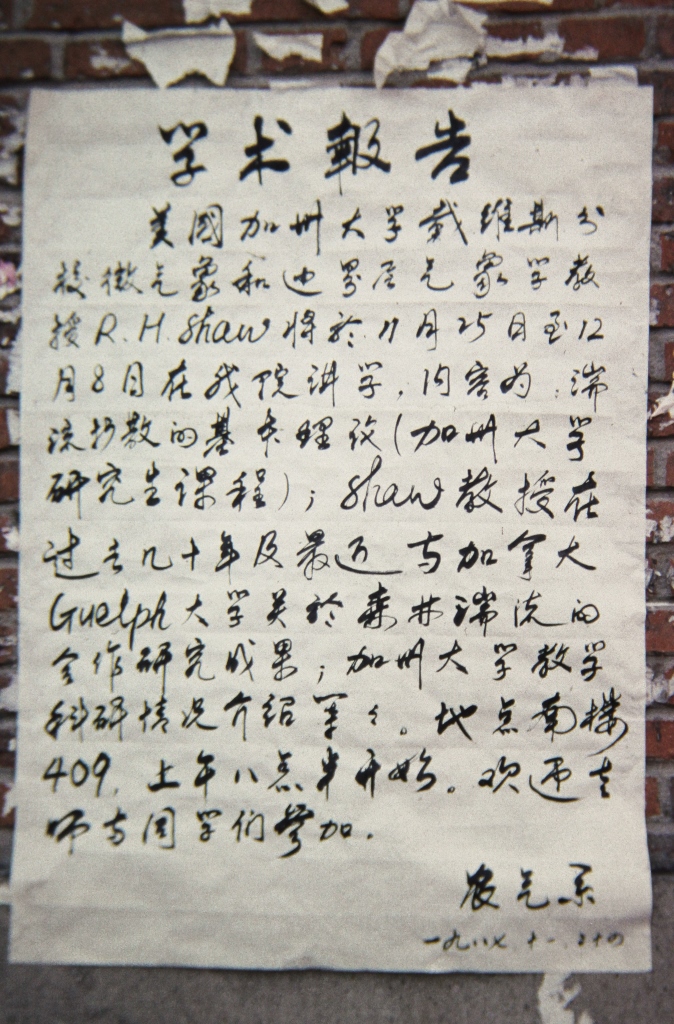 学术報告
美國加州大学戴维斯分
校微气象和边界层气象学教
授R.H.Shaw将於11月25日至12
月8日在我院讲学,内容为:湍
流扩散的基本理论(加州大学
研究生课程);Shaw教授在
过去几十年及最近与加拿大
Guelph大学关於森林湍流的
合作研究成果;加州大学教学
科研情况介绍等等。地点南楼
409,上午八点半开始。欢迎老
师与同学们参加.
农气系
一九八七.十一.二十四